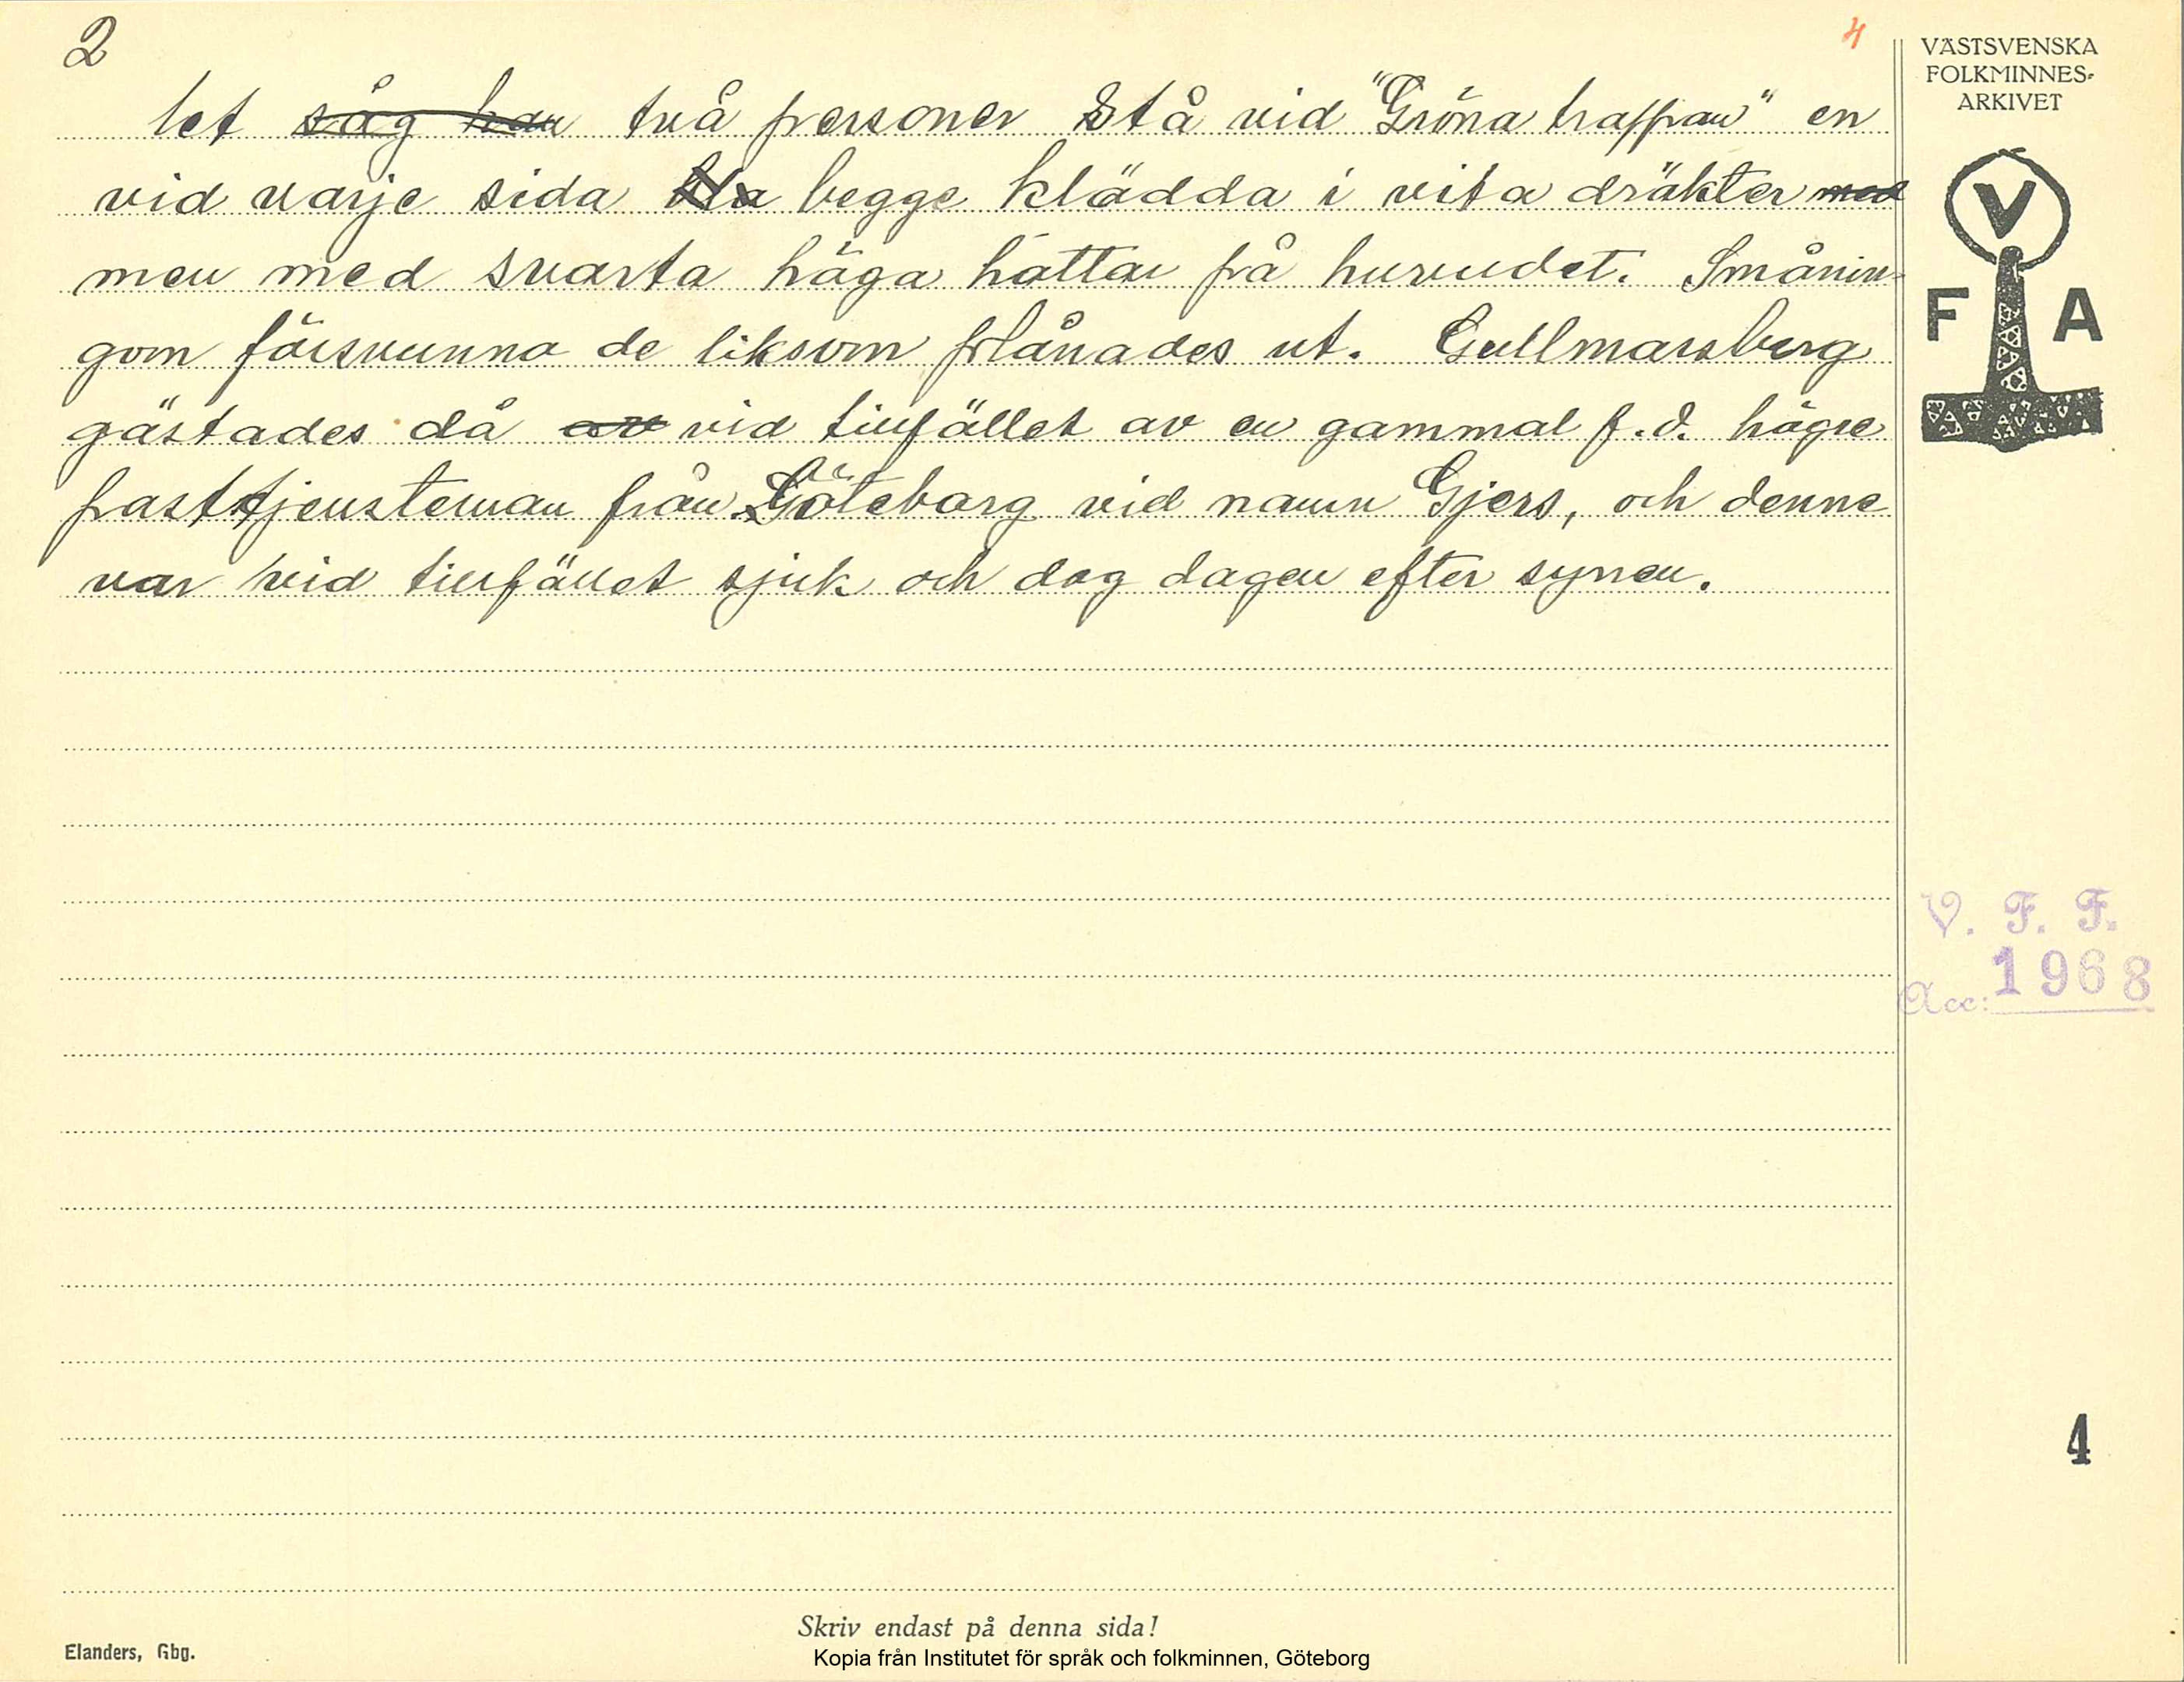 2
4
let såg han två personer stå vid "Gröna trappan" en
vid varje sida begge klädda i vita dräkter med
men med svarta höga hattar på huvudet. Smånin-
gom försvunno de liksom plånades ut. Gullmarsberg
gästades då av vid tillfället av en gammal f.d. högre
posttjensteman från Göteborg vid namn Gjers, och denne
var vid tillfället sjuk och dog dagen efter synen.
VÄSTSVENSKA
FOLKMINNES-
ARKIVET
V
F A
V. F. F.
Acc: 1968
4
Skriv endast på denna sida!
Elanders, Gbg.
Kopia från Institutet för språk och folkminnen, Göteborg